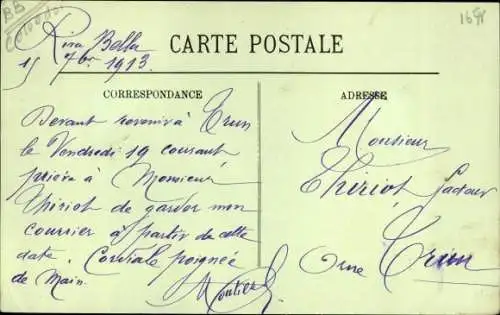 BB
Calvados
16 F
Riva Bella
15 7bre 1913
CARTE POSTALE
CORRESPONDANCE
ADRESSE
Devant revenir à Trun
le Vendredi 19 courant
prière à Monsieur
Thiriot de garder mon
courrier à partir de cette
date. Cordiale poignée
de Main.
Monsieur
Thiriot facteur
Trun
Orne